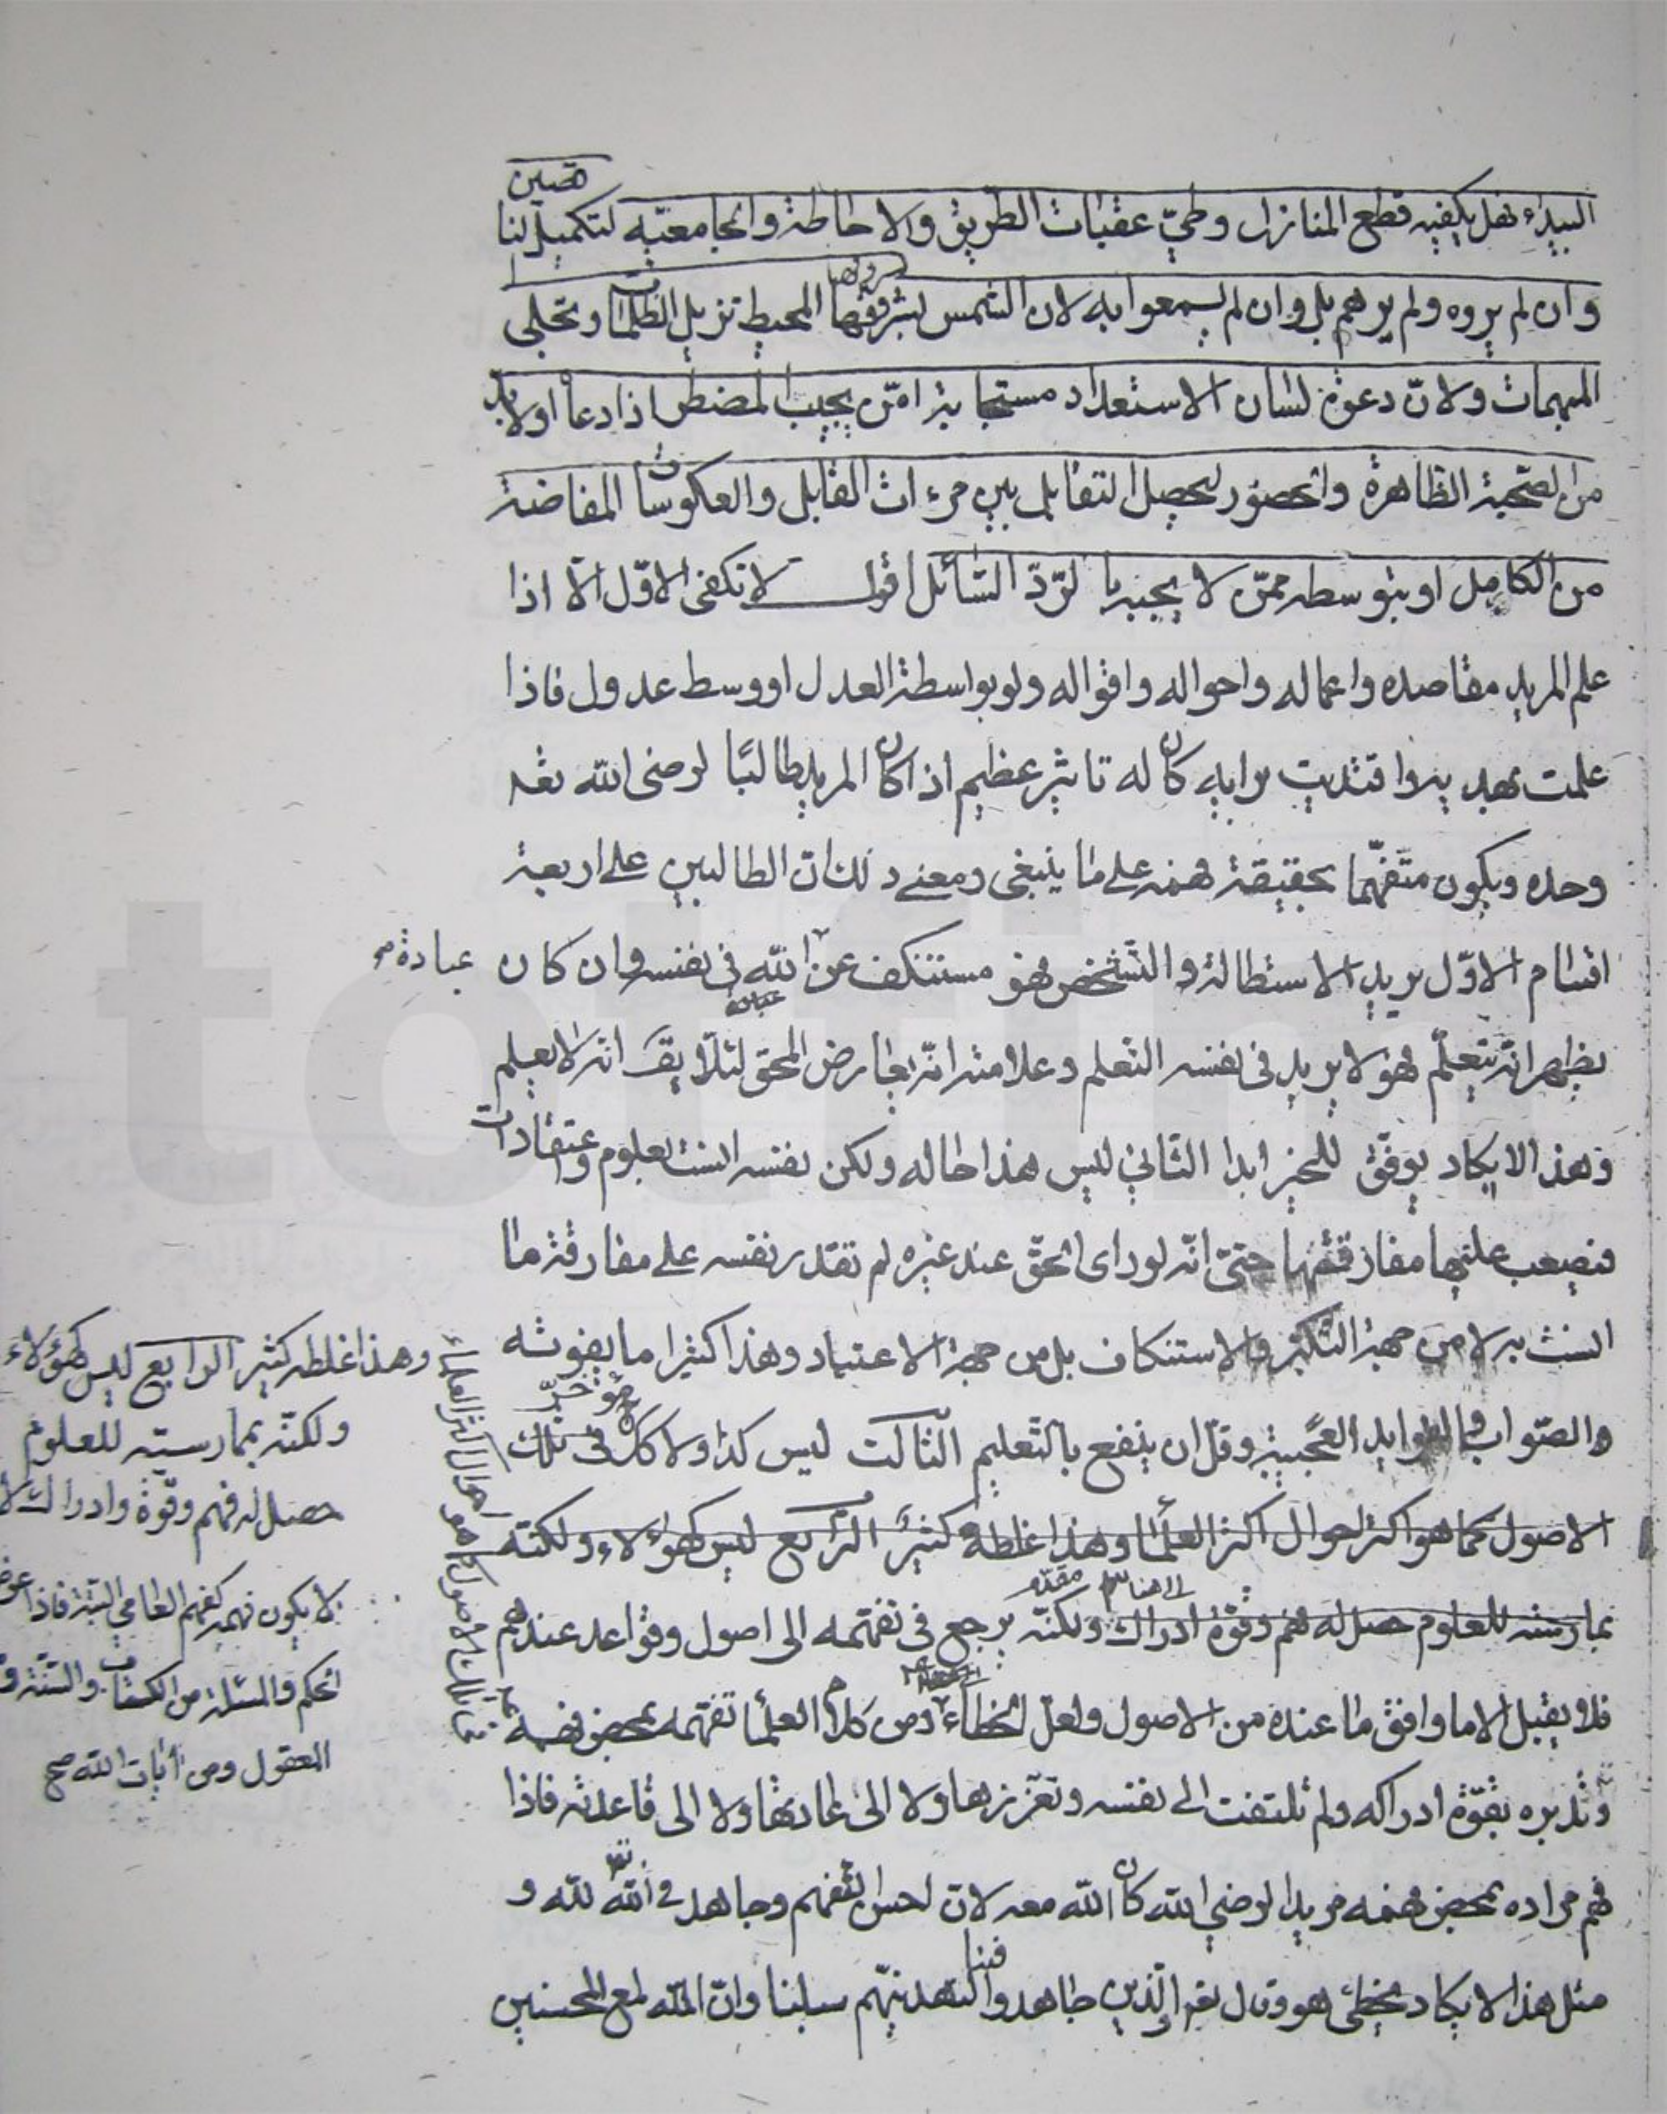 البيداء فهل يكفيه قطع المنازل وطيّ عقبات الطريق والاحاطة والجامعيّه لتكميل لنا
قصين
وان لم يروه ولم يرهم بل وان لم يسمعوا به لان الشمس لشروقها المحيط تزيل الظلمات وتجلى
المبهمات ولانّ دعوة لسان الاستعداد مستجابة امّن يجيب المضطر اذا دعا اولابد
من الصحبة الظاهرة والحضور ليحصل التقابل بين مرءات القابل والعكوسات المفاضة
من الكامل او بتوسطه ممّن لا يجبه بالرّدّ السّائل اقول لا تكفى الاوّل الّا اذا
علم المريد مقاصده واعماله واحواله واقواله ولو بواسطة العدل او وسط عدول فاذا
علمت بهديه واقتديت برايه كان له تاثير عظيم اذا كان المريد طالبًا لرضى الله تعـ
وحده ويكون متفهّما بحقيقة فهمه على ما ينبغى ومعنى ذلك ان الطالبين على اربعة
اقسام الاوّل يريد الاستطالة والتشخص فهو مستنكف عن الله فى نفسه وان كان
عبادة صح
يظهر انّه يتعلّم فهو لا يريد فى نفسه التعلم وعلامته انّه يعارض المحق لئلّا يقـ انه لا يعلم
وهذا لا يكاد يوفّق للخير ابدا الثاني ليس هذا حاله ولكن نفسه انست بعلوم واعتقادات
فيصعب عليها مفارقتها حتىّ انّه لو راى الحقّ عند غيره لم تقدر نفسه على مفارقة ما
انست به لا من جهة التكبّر والاستنكاف بل من جهة الاعتياد وهذا كثيرا ما يفوته
والصّواب والفوايد العجيبة وقلّ ان ينفع بالتّعليم الثالث ليس كذا ولا كك فى تلك
مؤخرّ
الاصول كما هو اكثر احوال اكثر العلمآ وهذا غلطه كثير الرّابع ليس كهؤلاء ولكنّه
بمارسته للعلوم حصل له فهم وقوّة ادراك ولكنّه يرجع فى تفهّمه الى اصول وقواعد عندهم
الى هنا مقدّم
فلا يقبل الا ما وافق ما عنده من الاصول ولعلّ الخطاء من كلام العلمآ تفهّمه بمحض فهمه
وتدبره بقوّة ادراكه ولم تلتفت الى نفسه وتعزّزها ولا الى عادتها ولا الى قاعدته فاذا
فهم مراده بمحض فهمه مريدا لرضي الله كان الله معه لانّ احسن التفهم وجاهد فى الله لله و
مثل هذا لا يكاد يخطئ هو وقال تعـ والّذين جاهدوا فينا لنهدينّهم سبلنا وانّ الله لمع المحسنين
وهذا غلطه كثير الرابع ليس كهؤلاء
ولكنّه بممارسته للعلوم
حصل له فهم وقوّة وادراك لا
لا يكون فهمه كفهم العامي البتّة فاذا عرض
الحكم والمسئلة من الكتاب والسّنّة و
العقول ومن آيات الله صح